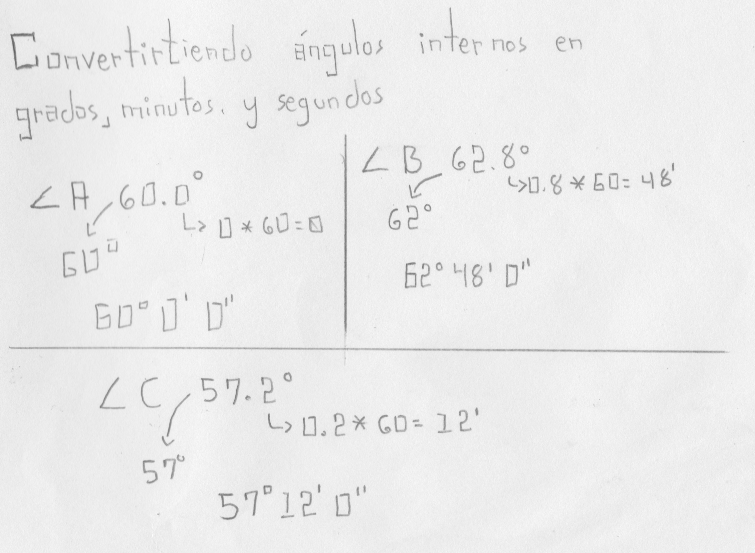 Convertirtiendo ángulos internos en
grados, minutos. y segundos
∠A 60.0°
↳ 0 * 60 = 0
60°
60° 0' 0"
∠B 62.8°
↳ 0.8 * 60 = 48'
62°
62° 48' 0"
∠C 57.2°
↳ 0.2 * 60 = 12'
57°
57° 12' 0"